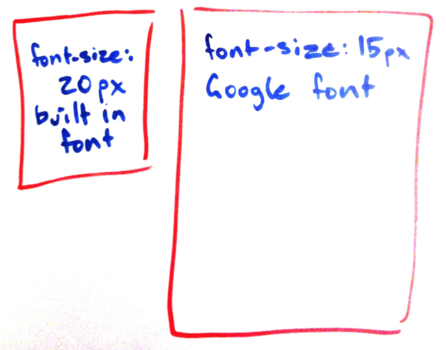 font-size:
20px
built in
font
font-size: 15px
Google font